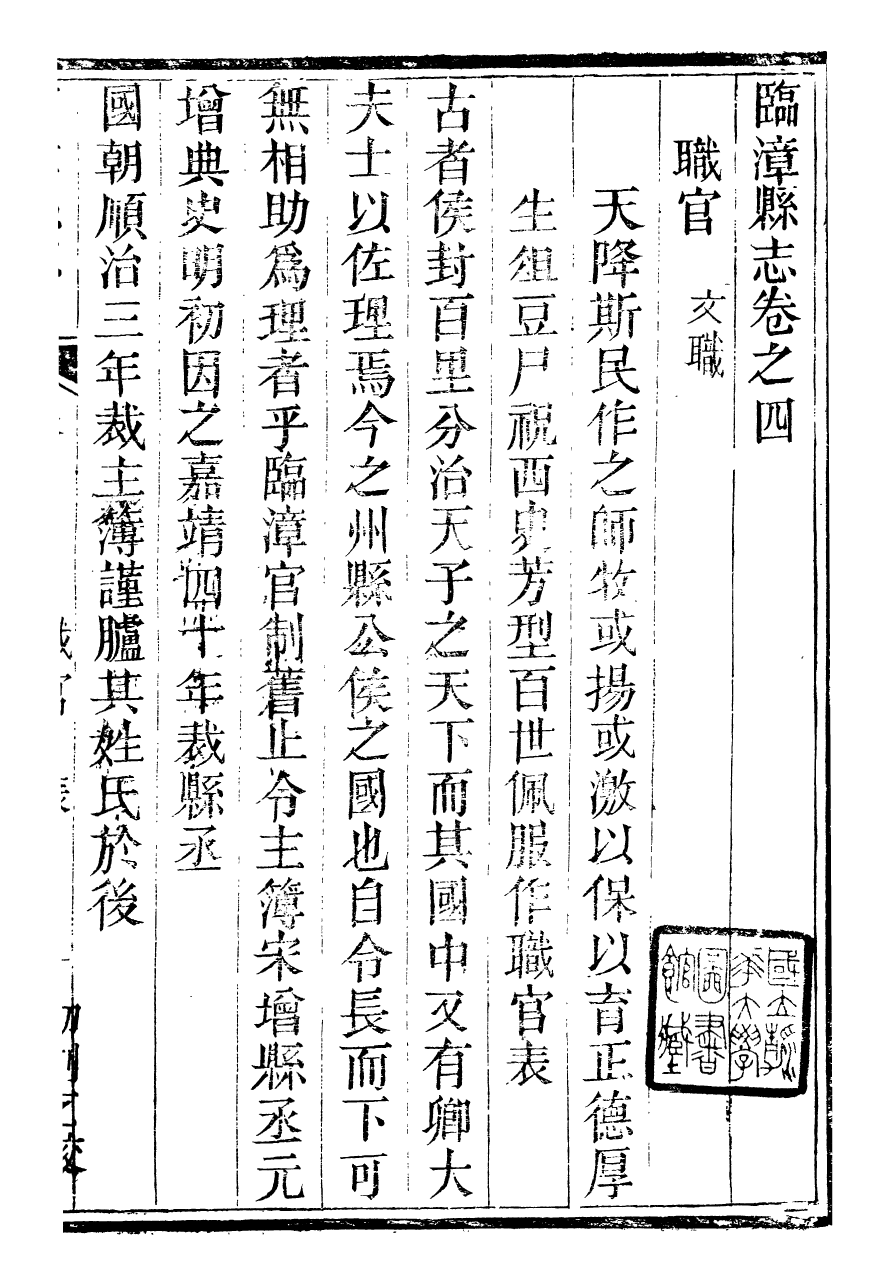 臨漳縣志卷之四
職官 文職
天降斯民作之師牧或揚或激以保以育正德厚
生俎豆尸祝西史芳型百世佩服作職官表
古者侯封百里分治天子之天下而其國中又有卿大
夫士以佐理焉今之州縣公侯之國也自令長而下可
無相助為理者乎臨漳官制舊止令主簿宋增縣丞元
增典史明初因之嘉靖四十年裁縣丞
國朝順治三年裁主簿謹臚其姓氏於後
國立清華大學圖書館藏